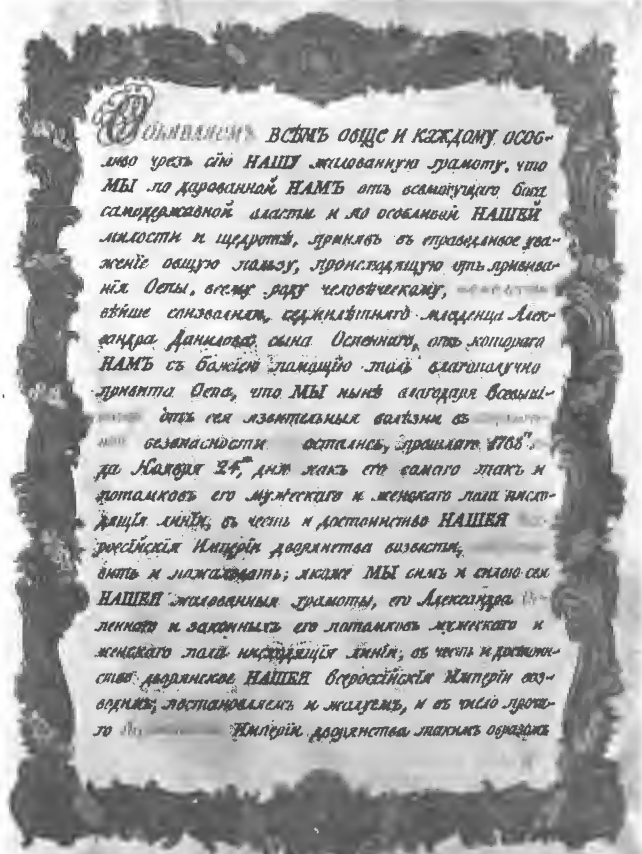 Объявляемъ ВСѢМЪ ОБЩЕ И КАЖДОМУ ОСОБ-
ливо чрезъ сію НАШУ жалованную грамоту, что
МЫ по дарованной НАМЪ отъ всемогущаго бога
самодержавной власти и по особливой НАШЕЙ
милости и щедротѣ, принявъ въ справедливое ува-
женіе общую пользу, происходящую отъ привива-
нія Оспы, всему роду человѣческому,
вѣйше соизволили, седмилѣтняго младенца Алек-
сандра Данилова сына Оспеннаго, отъ котораго
НАМЪ съ божіею помощію толь благополучно
привита Оспа, что МЫ нынѣ благодаря Всевыш-
отъ сея язвительныя болѣзни въ
безопасности остались, прошлаго 1768го
да Ноября 24го дня какъ его самаго такъ и
потомковъ его мужескаго и женскаго пола нисхо-
дящія линіи, въ честь и достоинство НАШЕЯ
россійскія Имперіи дворянства возвести,
вить и пожаловать; якоже МЫ симъ и силою сея
НАШЕЯ жалованныя грамоты, его Александра
пеннаго и законныхъ его потомковъ мужескаго и
женскаго пола нисходящія линіи, въ честь и достоин-
ство дворянское НАШЕЯ Всероссійскія Имперіи воз-
водимъ, постановляемъ и жалуемъ, и въ число проча-
го Имперіи дворянства такимъ образомъ